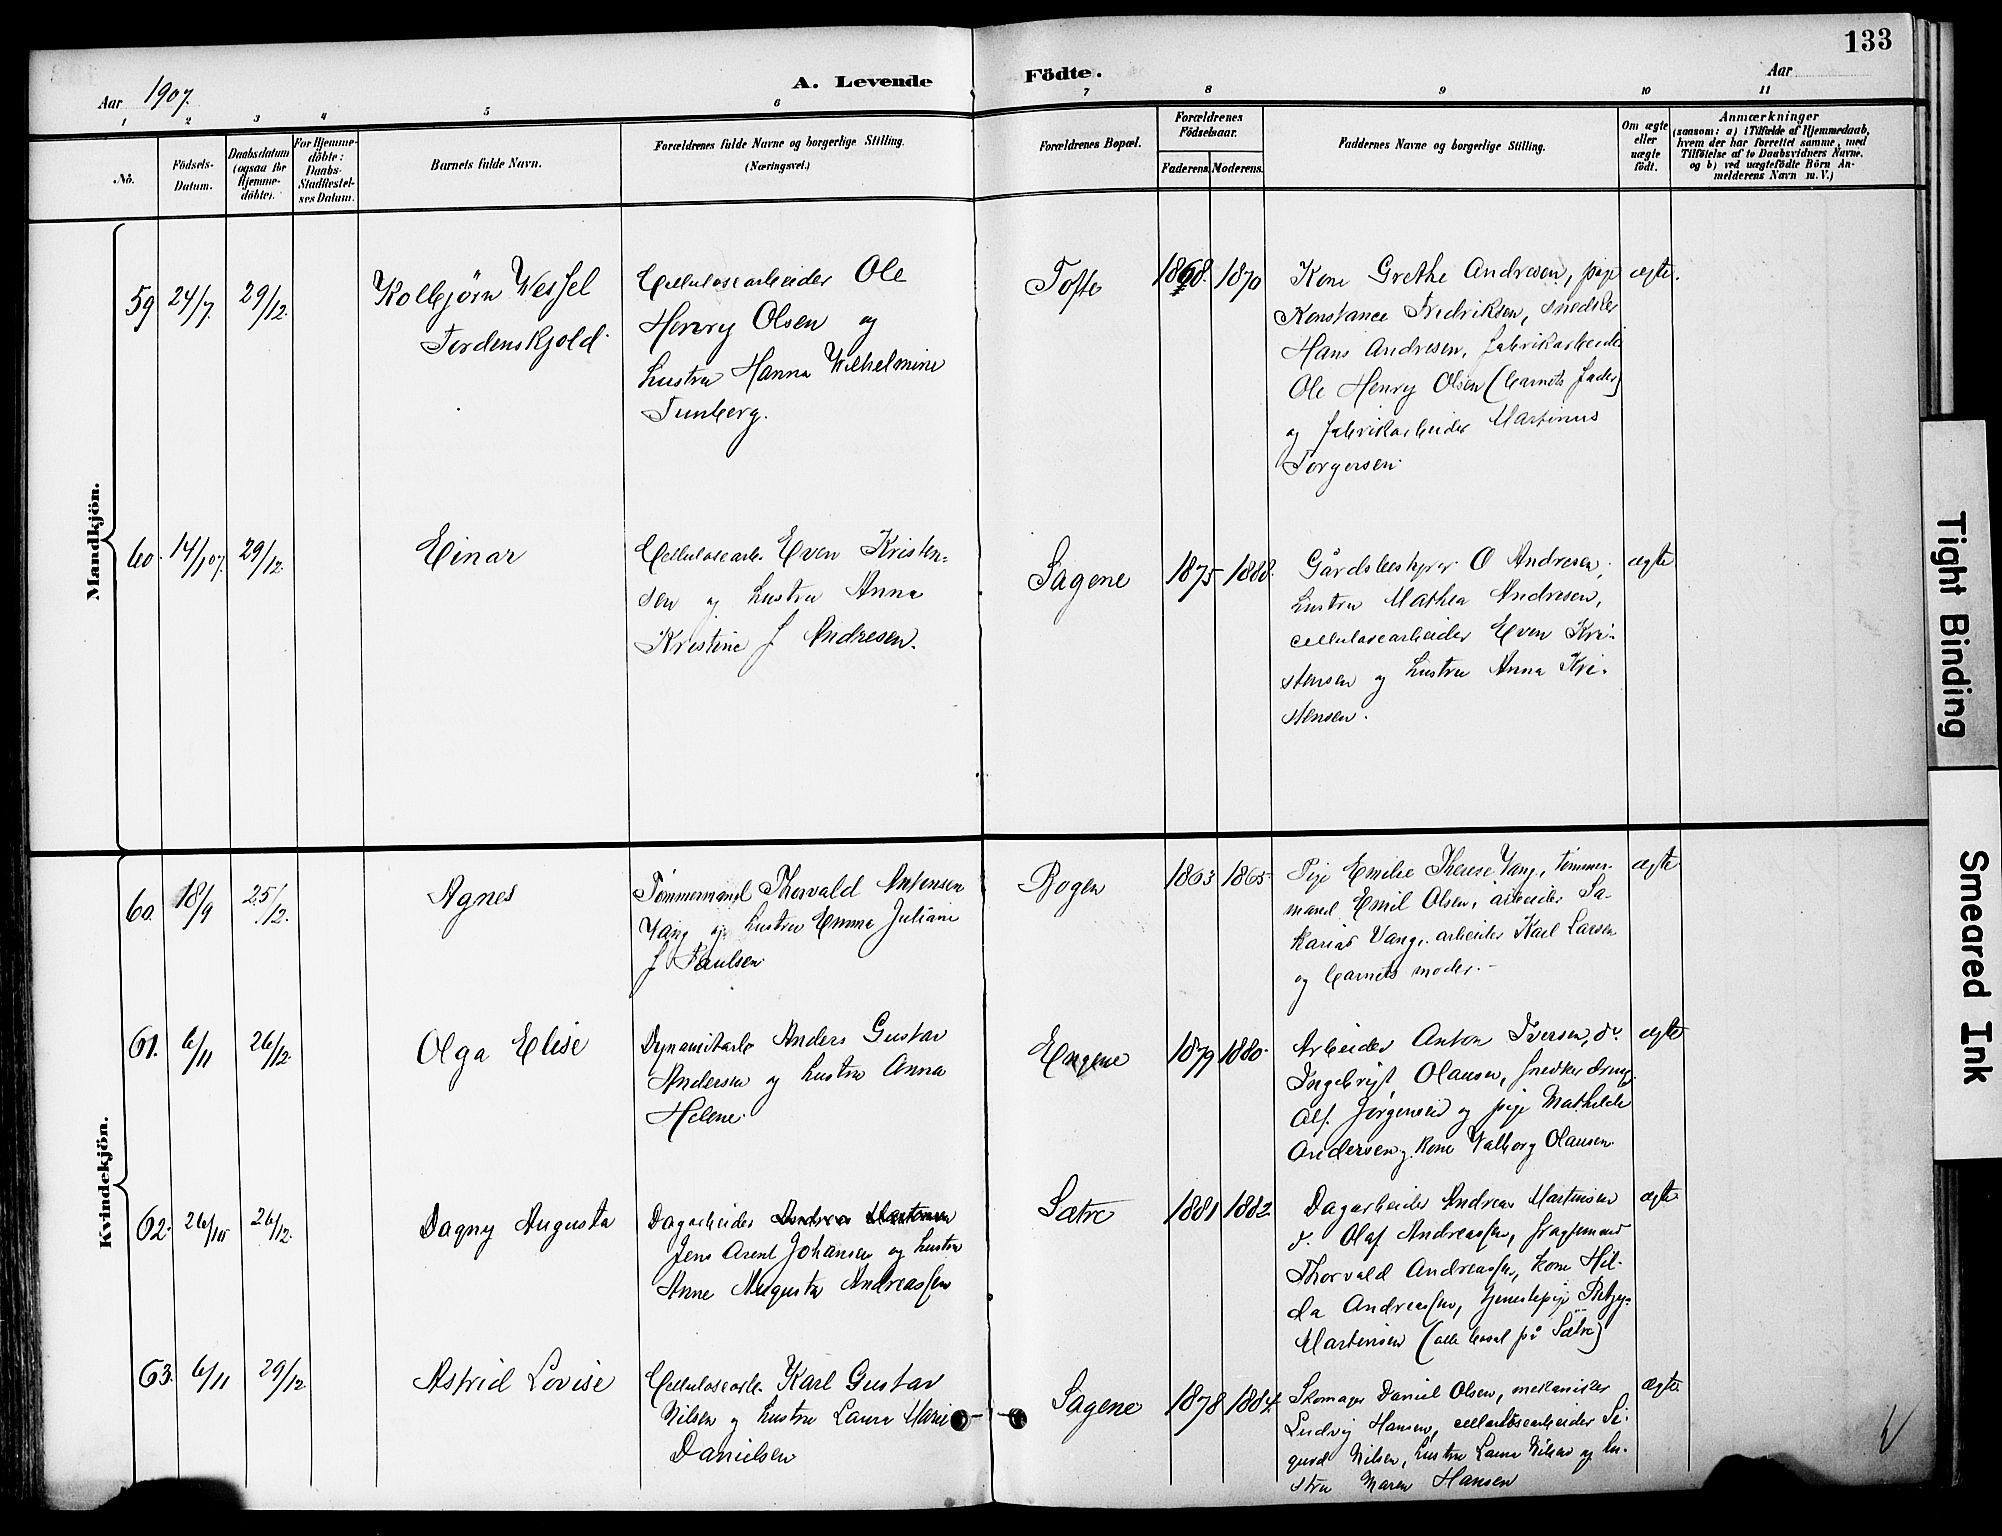 133
Aar 1907.
A. Levende Födte.
Aar
1 2 3 4 5 6 7 8 9 10 11
No.
Födsels-
Datum.
Daabsdatum
(ogsaa for
Hjemme-
döbte).
For Hjemme-
döbte:
Daabs-
Stadfæstel-
ses Datum.
Barnets fulde Navn.
Forældrenes fulde Navne og borgerlige Stilling.
(Næringsvei.)
Forældrenes Bopæl.
Forældrenes
Födselsaar.
Faderens. Moderens.
Faddernes Navne og borgerlige Stilling.
Om ægte
eller
uægte
födt.
Anmærkninger
(saasom: a) i Tilfælde af Hjemmedaab,
hvem der har forrettet samme, med
Tilföielse af to Daabsvidners Navne,
og b) ved uægtefödte Börn An-
melderens Navn m. V.)
Mandkjön.
59 24/7. 29/12.
Kolbjörn Wessel
Tordenskjold.
Cellulosearbeider Ole
Henry Olsen og
hustru Hanna Wilhelmine
Tunberg.
Tofte
1868. 1870
Kone Grethe Andresen, pige
Konstance Fredriksen, snedker
Hans Andresen, fabrikarbeide
Ole Henry Olsen (barnets fader)
og fabrikarbeider Martinus
Torgersen.
ægte.
60. 14/10 7. 29/12.
Einar
Cellulosearb. Even Kristen-
sen og hustru Anna
Kristine f Andresen.
Sagene
1875 1888.
Gårdsbestyrer O Andresen,
hustru Mathea Andresen,
cellulosearbeider Even Kri-
stensen og hustru Anna Kri-
stensen.
ægte
Kvindekjön.
60. 18/9 25/12.
Agnes
Tømmermand Thorvald Antonsen
Vang og hustru Emma Juliane
f Paulsen.
Bogen
1863 1865
Pige Emilie Therese Vang, tømmer-
mand Emil Olsen, arbeider Sa-
karias Vang, arbeider Karl Larsen
og barnets moder.-
ægte
61. 6/11 26/12.
Olga Elise
Dynamitarb Anders Gustav
Andersen og hustru Anna
Helene.
Engene
1879 1880.
Arbeider Anton Iversen, do.
Ingebrigt Olausen, snedkerdreng
Alf. Jørgensen og pige Mathilde
Andersen og kone Valborg Olausen.
ægte
62. 26/10 26/12.
Dagny Augusta
Dagarbeider Andreas Martinsen
Jens Arent Johansen og hustru
Anne Augusta Andreassen
Sætre
1881 1882.
Dagarbeider Andreas Martinsen
d. Olaf Andreassen,
Thorvald Andreassen, kone Hil-
da Andreassen, tjenestepige
Martinsen (alle bosat på Sætre)
ægte
63. 6/11 29/12
Astrid Lovise
Cellulosearb. Karl Gustav
Nilsen og hustru Laura Marie
Danielsen
Sagene
1878 1884.
Skomager Daniel Olsen, mekaniker
Ludvig Hansen, cellulosearbeider Si-
gurd Nilsen, hustru Laura Nilsen og hu-
stru Maren Hansen
ægte.
Tight Binding
Smeared Ink